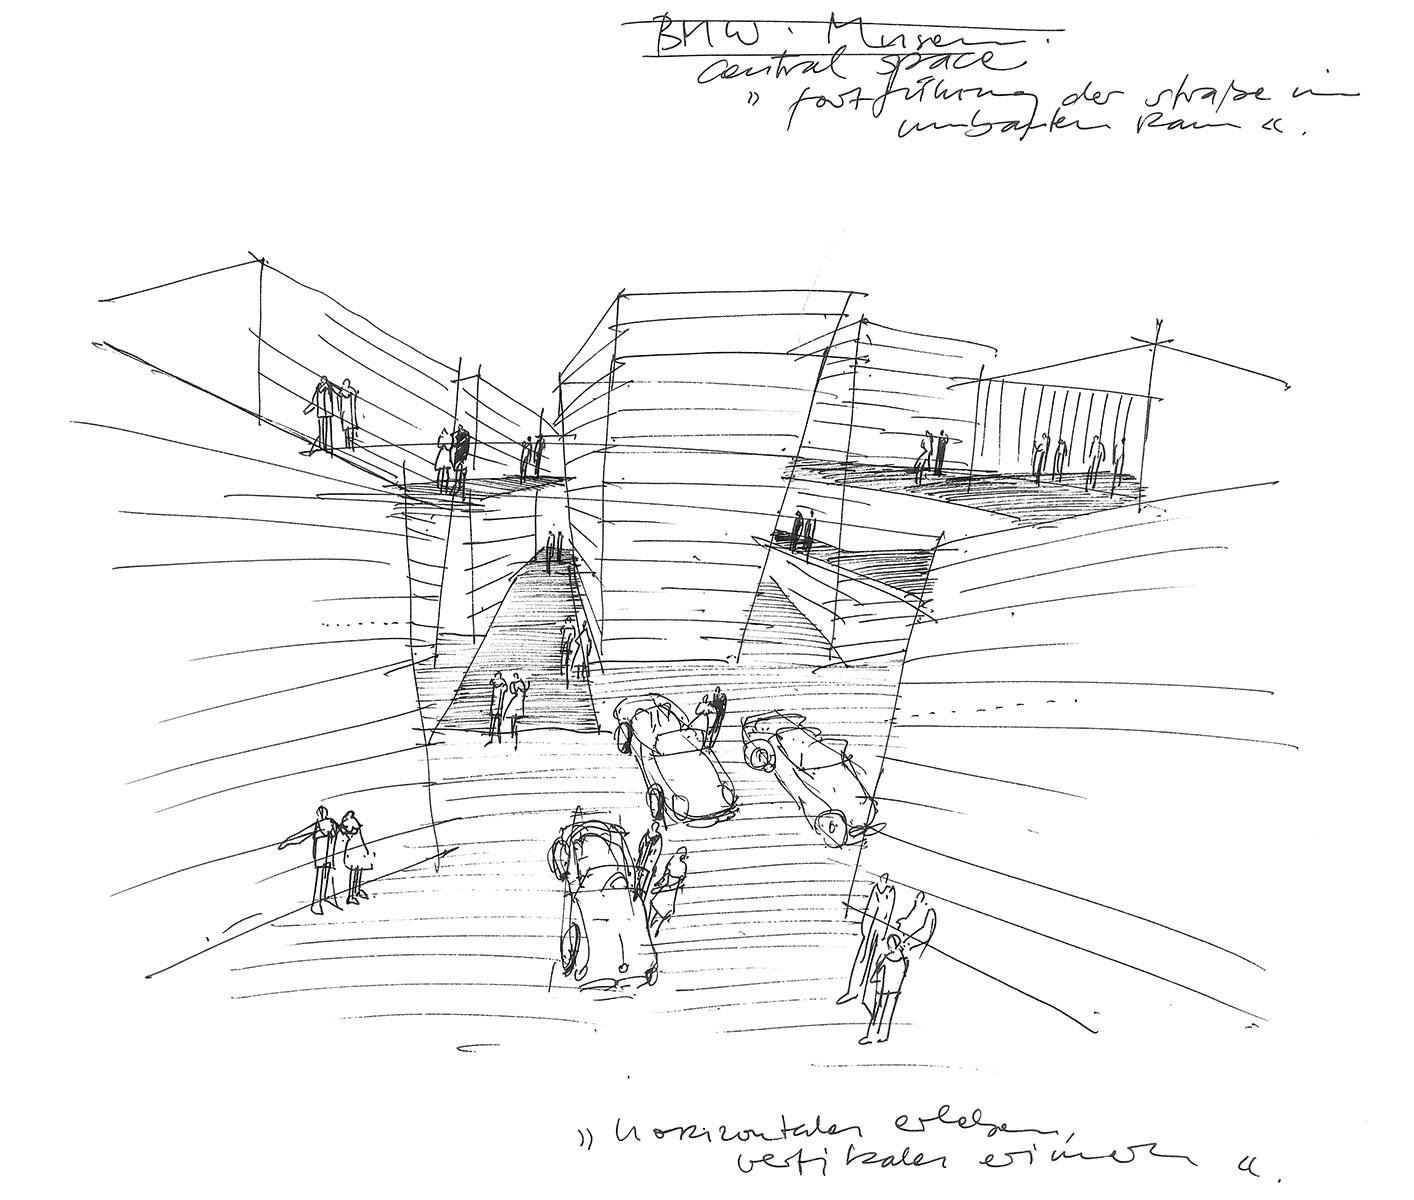 BMW. Museum.
central space
» fortführung der straße im
umbauten Raum «.
» horizontales erleben,
vertikales erinnern «.